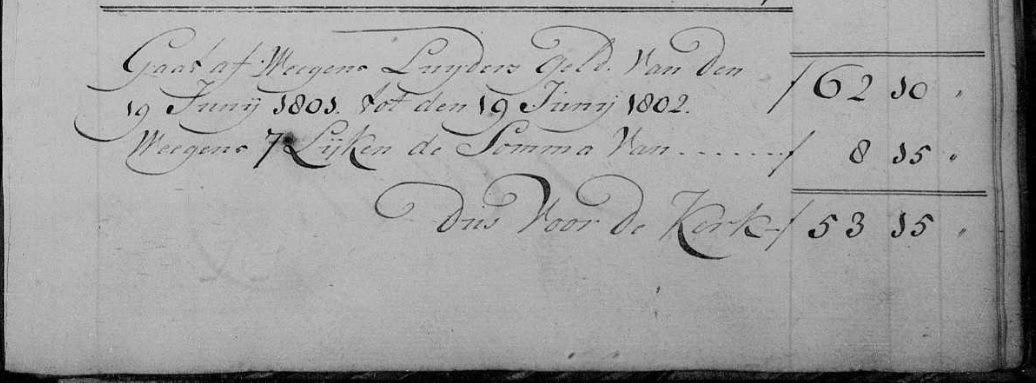 Gaat af Weegens Luyders Geld. Van den
19 Junij 1801. tot den 19 Junij 1802. f 62 10 "
Weegens 7 Lijken de Somma Van ....... f 8 15 "
Dus Voor de Kerk f 53 15 "